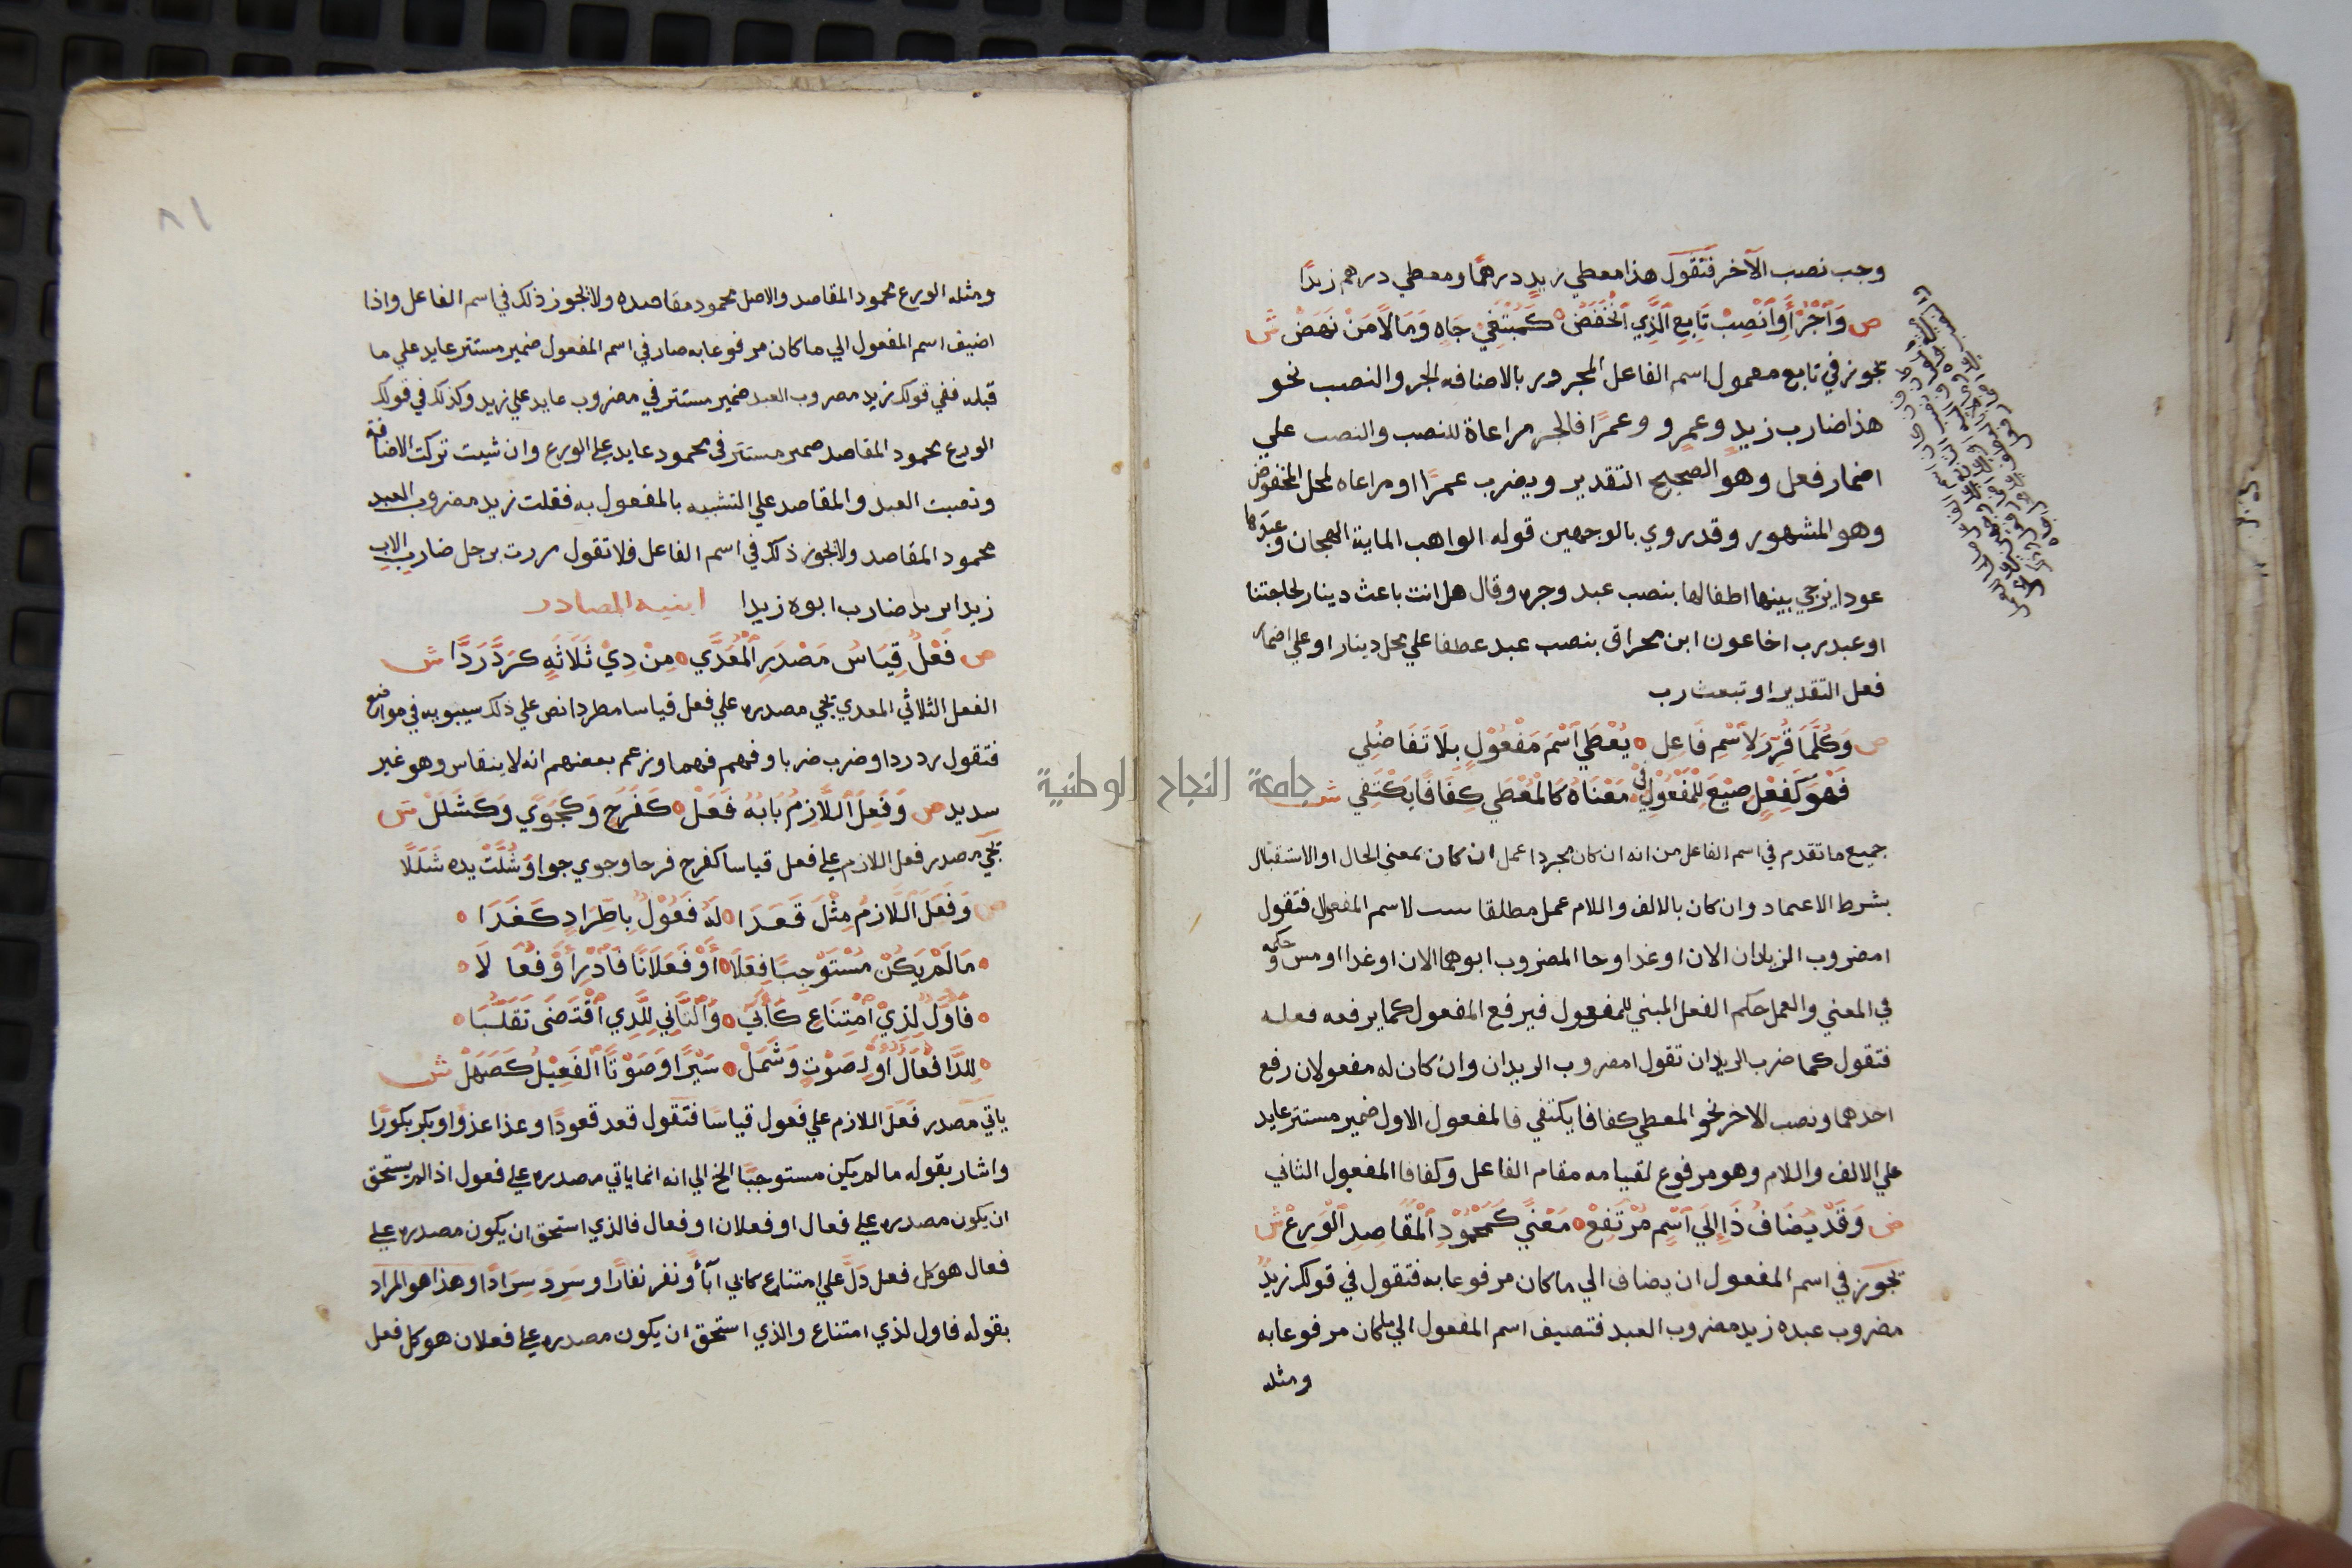 وجب نصب الآخر فتقول هذا معطي زيدٍ درهمًا ومعطي درهم زيدًا
ص وَٱجْرُرْ أَوِ ٱنْصِبْ تَابِعَ ٱلَّذِي ٱنْخَفَضْ ه كَمُبْتَغِيْ جَاهٍ وَمَالًا مَنْ نَهَضْ ش
يجوز في تابع معمول اسم الفاعل المجرور بالاضافه الجر والنصب نحو
هذا ضارب زيدٍ وعمرٍو وعمرًا فالجر مراعاة للنصب والنصب علي
اضمار فعل وهو الصحيح التقدير ويضرب عمرًا او مراعاه لمحل المخفوض
وهو المشهور وقد روي بالوجهين قوله الواهب الماية الهجان وعبدها
عودا يزجي بينها اطفالها بنصب عبد وجره وقال هل انت باعث دينار لحاجتنا
او عبد رب اخا عون ابن محراق بنصب عبد عطفا علي محل دينار او علي اضمار
فعل التقدير او تبعث رب
ص وَكُلُّمَا قُرِّرَ لِاسْمِ فَاعِلِ ه يُعْطَي ٱسْمَ مَفْعُوْلٍ بِلَا تَفَاضُلِي
فَهْوَ كَفِعْلٍ صِيْغَ لِلْمَفْعُوْلِ فِيْ ه مَعْنَاهُ كَالْمُعْطَي كِفَافًا يَكْتَفِي ش
جميع ما تقدم في اسم الفاعل من انه ان كان مجردا عمل ان كان بمعني الحال او الاستقبال
بشرط الاعتماد وان كان بالالف واللام عمل مطلقا ــت لاسم المفعول فتقول
امضروب الزيدان الان او غدا وجا المضروب ابوهما الان او غدا او امس وحكمه
في المعني والعمل حكم الفعل المبني للمفعول فيرفع المفعول كما يرفعه فعله
فتقول كما ضرب الزيدان تقول امضروب الزيدان وان كان له مفعولان رفع
احدهما ونصب الاخر نحو المعطي كفافا يكتفي فالمفعول الاول ضمير مستتر عايد
علي الالف واللام وهو مرفوع لقيامه مقام الفاعل وكفافا المفعول الثاني
ص وَقَدْ يُضَافُ ذَا إِلَي ٱسْمٍ مُرْتَفِعْ ه مَعْنًي كَمَحْمُوْدِ ٱلْمَقَاصِدِ ٱلْوَرِعْ ش
يجوز في اسم المفعول ان يضاف الي ما كان مرفوعا به فتقول في قولك زيدٌ
مضروب عبده زيد مضروب العبد فتضيف اسم المفعول الي ما كان مرفوعا به
ومثله
٨١
ومثله الورع محمود المقاصد والاصل محمود مقاصده ولا يجوز ذلك في اسم الفاعل واذا
اضيف اسم المفعول الي ما كان مرفوعا به صار في اسم المفعول ضمير مستتر عايد علي ما
قبله ففي قولك زيد مضروب العبد ضمير مستتر في مضروب عايد علي زيد وكذلك في قولك
الورع محمود المقاصد ضمير مستتر في محمود عايد علي الورع وان شيت تركت الاضافة
ونصبت العبد والمقاصد علي التشبيه بالمفعول به فقلت زيد مضروب العبد
محمود المقاصد ولا يجوز ذلك في اسم الفاعل فلا تقول مررت برجل ضارب الاب
زيدا يريد ضارب ابوه زيدا ابنيه المصادر
ص فَعْلٌ قِيَاسُ مَصْدَرِ ٱلْمُعَدَّي ه مِنْ ذِيْ ثَلَاثَةٍ كَرَدَّ رَدَّا ش
الفعل الثلاثي المعدي يجي مصدره علي فعل قياسا مطردا نص علي ذلك سيبويه في مواضع
فتقول رد ردا وضرب ضربا وفهم فهما وزعم بعضهم انه لا ينقاس وهو غير
سديد ص وَفَعِلَ ٱللَّازِمُ بَابُهُ فَعَلْ ه كَفَرَحٍ وَكَجَوًي وَكَشَلَلْ ش
يجي مصدر فعل اللازم علي فعل قياسا كفرح فرحا وجوي جوا وَشُلَّتْ يده شَلَلًا
ص وَفَعَلَ ٱللَّازِمُ مِثْلَ قَعَدَا ه لَهُ فَعُوْلٌ بِاطِّرَادٍ كَغَدَا ه
ه مَالَمْ يَكُنْ مُسْتَوْجِبًا فِعَلَا ه أَوْ فَعَلَانًا فَٱدْرِ أَوْ فُعَا لَا ه
ه فَأَوَّلٌ لِذِيْ ٱمْتِنَاعٍ كَأَبَيْ ه وَٱلثَّانِي لِلَّذِي ٱقْتَضَي تَقَلُّبَا ه
ه لِلدَّا فُعَالٌ أَوْ لِصَوْتٍ وَشَمَلْ ه سَيْرًا وَصَوْتًا ٱلْفَعِيْلُ كَصَهَلْ ش
ياتي مصدر فَعَلَ اللازم علي فَعول قياسًا فتقول قعد قعودًا وغدا غدوًا وبكر بكورًا
واشار بقوله مالم يكن مستوجبًا الخ الي انه انما ياتي مصدره علي فعول اذا لم يستحق
ان يكون مصدره علي فعال او فعلان او فعال فالذي استحق ان يكون مصدره علي
فعال هو كل فعل دَلَّ علي امتناع كابي اَبَاً ونفر نفارًا وسَرِدَ سِرَادًا وهذا هو المراد
بقوله فاول لذي امتناع والذي استحق ان يكون مصدره علي فعلان هو كل فعل
جامعة النجاح الوطنية